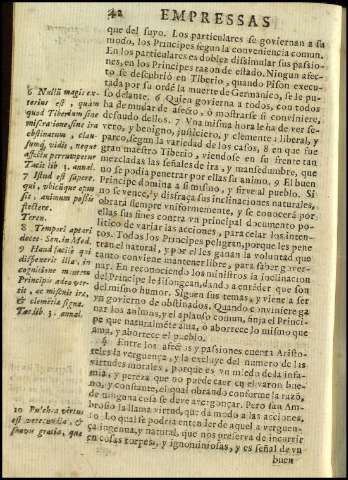 42 EMPRESSAS
que del suyo. Los particulares se goviernan a su
modo, los Principes segun la conveniencia comun.
En los particulares es doblez disimular sus passio-
nes, en los Principes razon de estado. Ningun afec-
to se descubriò en Tiberio, quando Pison execu-
tada por su orden la muerte de Germanico, se le pu-
so delante. 6 Quien govierna a todos, con todos
ha de mudar de afecto, ò mostrarse si conviniere,
desnudo dellos. 7 Una misma hora le ha de ver se-
vero, y benigno, justiciero, y clemente, liberal, y
parco, segun la variedad de los casos, 8 en que fue
gran maestro Tiberio, viendose en su frente tan
mezcladas las señales de ira, y mansedumbre, que
no se podia penetrar por ellas su animo. 9 El buen
Principe domina a si mismo, y sirve al pueblo. Si
no se vence, y disfraça sus inclinaciones naturales,
obrarà siempre uniformemente, y se conocerà por
ellas sus fines contra un principal documento po-
litico de variar las acciones, para celar los inten-
tos. Todos los Principes peligran, porque les pene-
tran el natural, y por el les ganan la voluntad que
tanto conviene mantener libre, para saber gover-
nar. En reconociendo los ministros la inclinacion
del Principe le lisongean, dando a entender que son
del mismo humor. Siguen sus temas, y viene a ser
un govierno de obstinados. Quando conviniere ga-
nar los animos, y el aplauso comun, finja el Princi-
pe que naturalmente ama, ò aborrece lo mismo que
ama, y aborrece el pueblo.
§ Entre los afectos y passiones cuenta Aristo-
teles la verguença, y la excluye del numero de las
virtudes morales, porque es un miedo de la infa-
mia, y pereza que no puede caer en el varon bue-
no, y constante, el qual obrando conforme la razon,
de ninguna cosa se deve avergonçar. Pero san Am-
brosio la llama virtud, que da modo a las acciones.
10 Lo qual se podria entender de aquel a verguen-
ça ingenua, y natural, que nos preserva de incurrir
en cosas torpes, y ignominiosas, y es señal de un
buen
6 Nullũ magis ex-
terius est, quam
quod Tiberium sine
miseratione, sine ira
obstinatum, clau-
sumq; vidit, neque
affectu perrumpere
Tacit. lib. 3. annal.
7 Istud est sapere,
qui, ubicũque opus
sit, animum possis
flectere.
Teren.
8 Tempori aptari
decet. Sen. in Med.
9 Haud facilè quis
dispexerit illa, in
cognitione mentem
Principis adeo ver-
tit, ac miscuit iræ,
& clemẽtiæ signa.
Tac. lib. 3. annal.
10 Pulchra virtus
est verecundia, &
suavis gratia, quæ